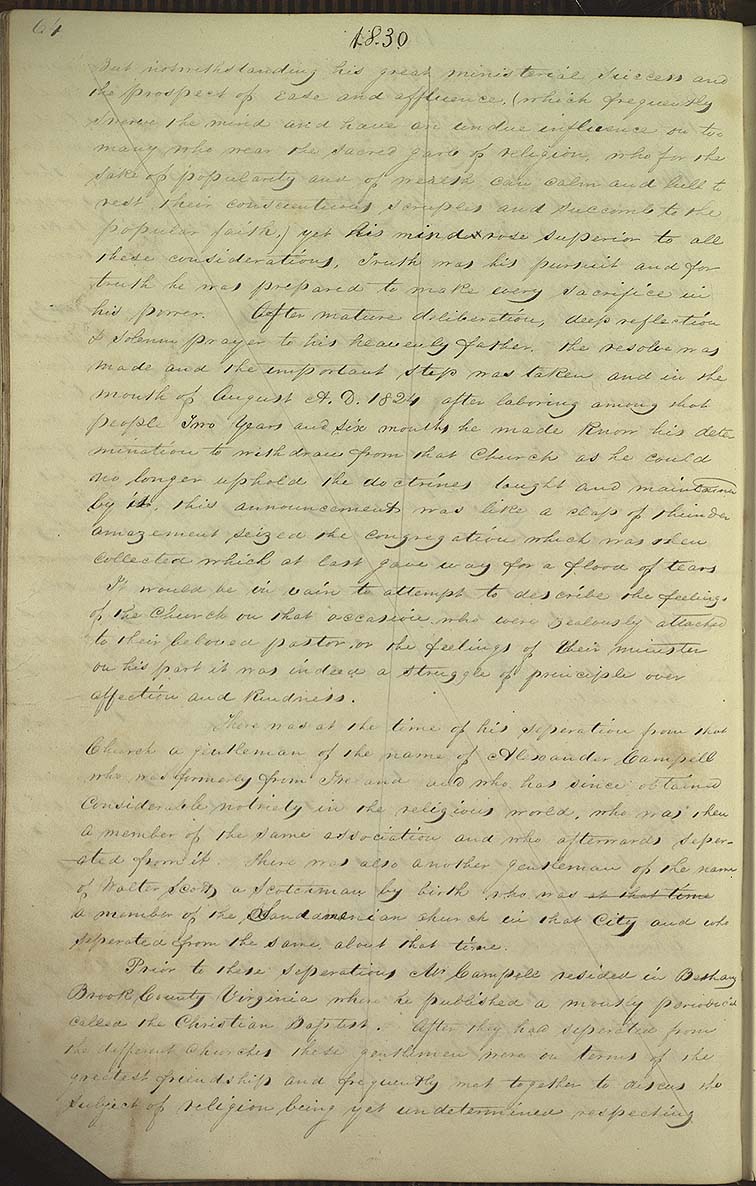 64
1830
but notwithstanding his great ministerial success and
the prospect of ease and affluence, (which frequently
swerve the mind and have an undue influence on too
many who wear the sacred garb of religion, who for the
sake of popularity and of wealth can calm and lull to
rest their conscientious scruples and succomb to the
popular faith,) yet his mind rose superior to all
these considerations. Truth was his pursuit and for
truth he was prepared to make every sacrifice in
his power. After mature deliberation, deep reflection
& solemn prayer to his heavenly father. the resolve was
made and the important step was taken and in the
month of August A. D. 1824 after laboring among that
people Two Years and six months he made know his deter
mination to withdraw from that Church as he could
no longer uphold the doctrines taught and maintained
by it. this announcement was like a clap of thunder
amazement seized the congregation which was then
collected which at last gave way for a flood of tears
It would be in vain to attempt to describe the feelings
of the Church on that occasion, who were zealously attached
to their beloved pastor, or the feelings of their minister
on his part it was indeed a struggle of principle over
affection and kindness.
There was at the time of his seperation from that
Church a gentleman of the name of Alexander Campell
who was formerly from Ireand and who has since obtained
Considerable notriety in the religious world, who was then
a member of the same association and who afterwards seper-
ated from it. There was also another gentleman of the name
of Walter Scott, a Scotchman by birth who was at that time
a member of the Sandamenian church in that City and who
seperated from the same about that time.
Prior to these seperations Mr Campell resided in Bethany
Brook County Virginia where he published a montly periodical
called the Christian Baptist. After they had seperated from
the different Churches these gentlemen were on terms of the
greatest friendship and frequently met together to discus the
subject of religion being yet undetermined respecting